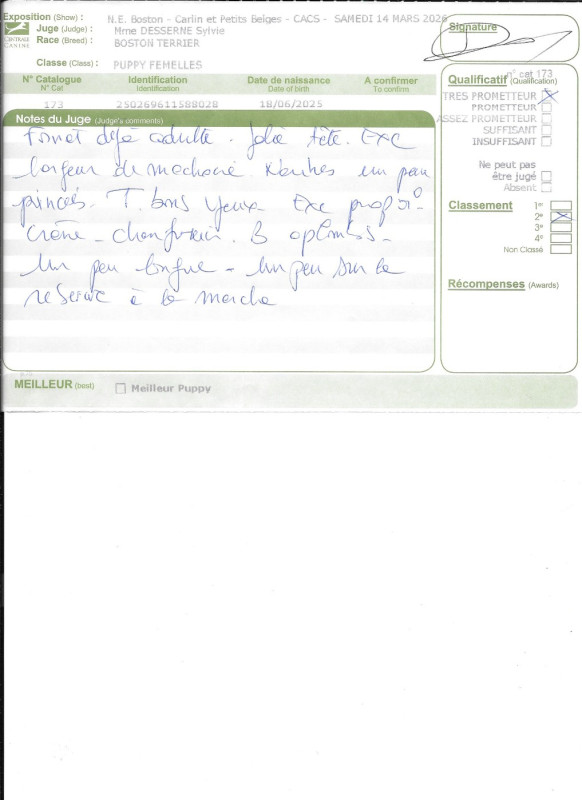 Exposition (Show) : N.E. Boston - Carlin et Petits Belges - CACS - SAMEDI 14 MARS 2026
Juge (Judge) : Mme DESSERNE Sylvie
Race (Breed) : BOSTON TERRIER
CENTRALE CANINE
Classe (Class) : PUPPY FEMELLES
N° Catalogue Identification Date de naissance A confirmer
N° Cat Identification Date of birth To confirm
173 250269611588028 18/06/2025
Notes du Juge (Judge's comments)
Format déjà adulte. Jolie tête. Exc
largeur de machoire. Narines un peu
pincées. T. bons yeux. Exc propor°
crâne - chanfrein. B aplombs.
Un peu longue - un peu sur la
réserve à la marche
MEILLEUR (best) Meilleur Puppy
Signature
n° cat 173
Qualificatif (Qualification)
TRES PROMETTEUR
PROMETTEUR
ASSEZ PROMETTEUR
SUFFISANT
INSUFFISANT
Ne peut pas
être jugé
Absent
Classement 1er
2e
3e
4e
Non Classé
Récompenses (Awards)